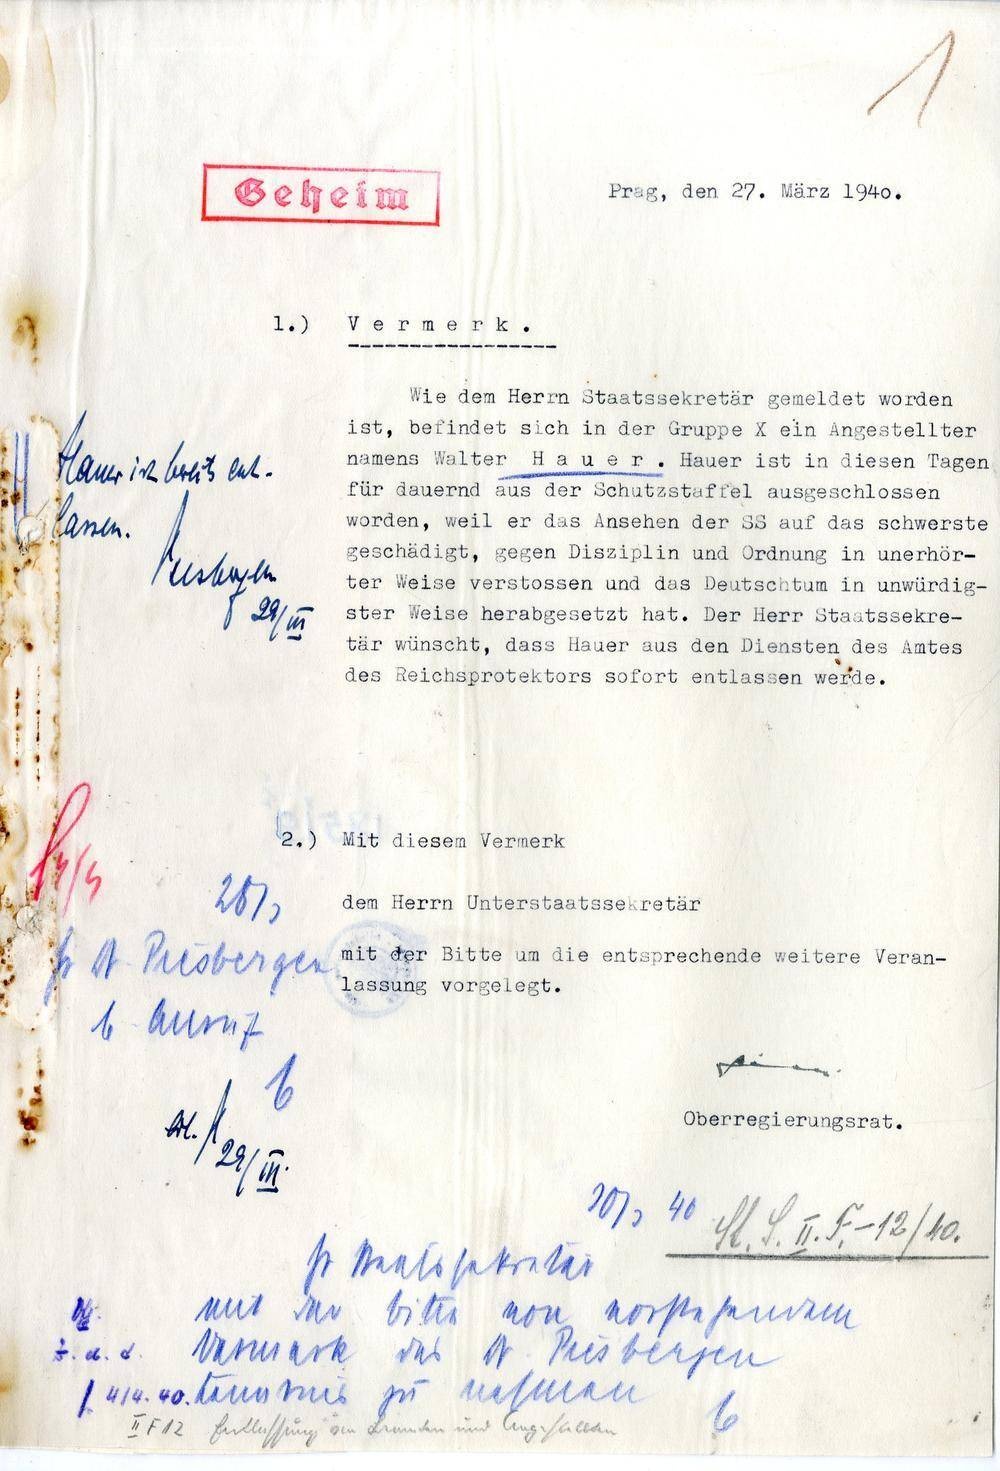 1
Geheim
Prag, den 27. März 1940.
1.) Vermerk.
Wie dem Herrn Staatssekretär gemeldet worden
ist, befindet sich in der Gruppe X ein Angestellter
namens Walter Hauer. Hauer ist in diesen Tagen
für dauernd aus der Schutzstaffel ausgeschlossen
worden, weil er das Ansehen der SS auf das schwerste
geschädigt, gegen Disziplin und Ordnung in unerhör-
ter Weise verstossen und das Deutschtum in unwürdig-
ster Weise herabgesetzt hat. Der Herr Staatssekre-
tär wünscht, dass Hauer aus den Diensten des Amtes
des Reichsprotektors sofort entlassen werde.
Hauer ist bereits ent-
lassen.
29/III
2.) Mit diesem Vermerk
dem Herrn Unterstaatssekretär
mit der Bitte um die entsprechende weitere Veran-
lassung vorgelegt.
28/3
H Dr Piesbergen
b. Anruf
erl.
29/III.
Oberregierungsrat.
St. S. II. F.-12/40.
40
H Staatssekretär
mit der Bitte von vorstehendem
Vermerk des Dr Piesbergen
Kenntnis zu nehmen
z. d. A.
4/4. 40.
II F 12 Entlassung von Beamten und Angestellten